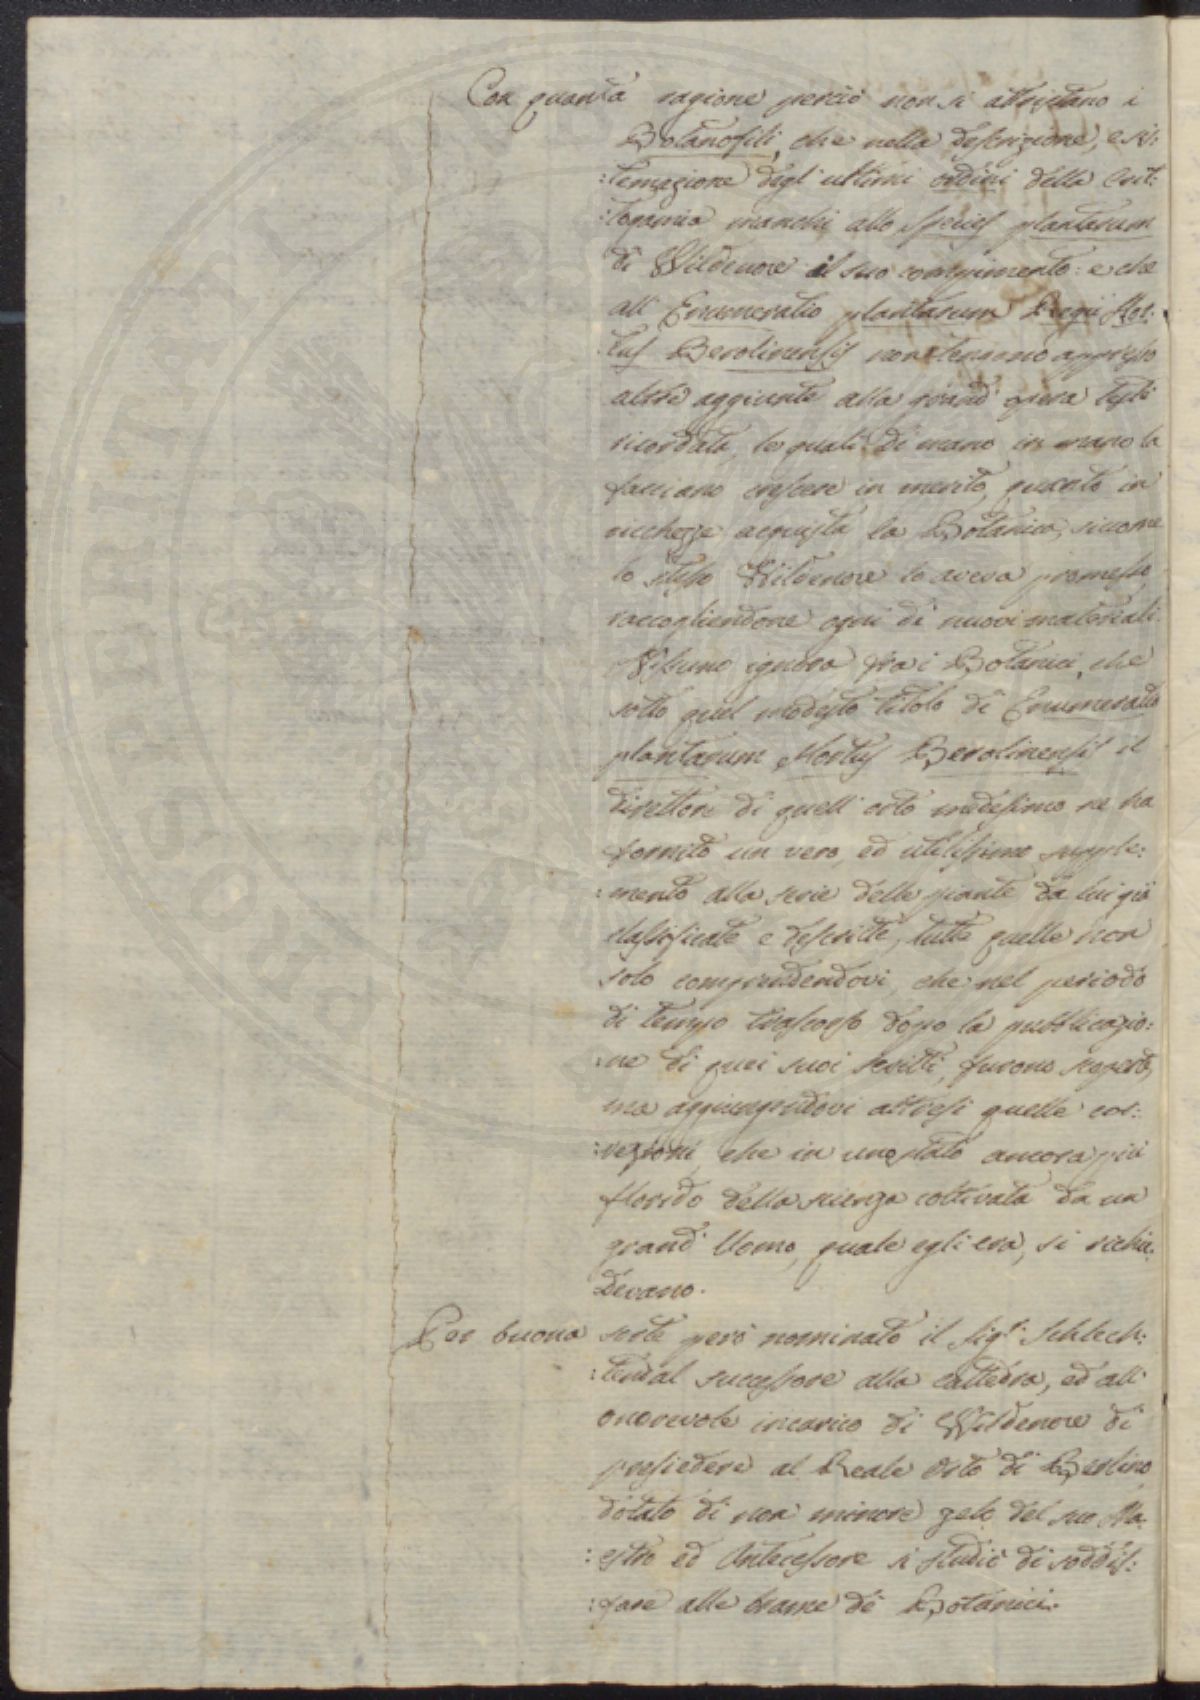 Con quanta ragione perciò non si attristano i
Botanofili, che nella descrizione, e sis:
:temazione degl' ultimi ordini della Crit:
:togamia manchi allo Species plantarum
di Wildenow il suo compimento: e che
all' Enumeratio plantarum Regii Hor:
:tus Berolinensis non tennero appresso
altre aggiunte alla grand' opera testè
ricordata, le quali di mano in mano la
facciano crescere in merito, quanto in
ricchezze acquista la Botanica, siccome
lo stesso Wildenow lo aveva promesso
raccogliendone ogni dì nuovi materiali.
Nessuno ignora fra i Botanici, che
sotto quel modesto titolo di Enumeratio
plantarum Hortus Berolinensis il
direttore di quell' orto medesimo ne ha
fornito un vero, ed utilissimo supple:
:mento alla serie delle piante da lui già
classificate e descritte, tutte quelle non
solo comprendendovi, che nel periodo
di tempo trascorso dopo la pubblicazio:
:ne di quei suoi scritti, furono scoperte,
ma aggiungendovi altresì quelle cor:
:rezioni, che in uno stato ancora più
florido della scienza coltivata da un
grand' Uomo, quale egli era, si richie:
devano.
Per buona sorte però nominato il Sigr. Schlech:
:tendal successore alla cattedra, ed all'
onorevole incarico di Wildenow di
presiedere al Reale Orto di Berlino
dotato di non minore zelo del suo Ma:
:estro ed Antecessore si studiò di soddis:
:fare alle brame de' Botanici.
PROSPERITATI PUBLICAE